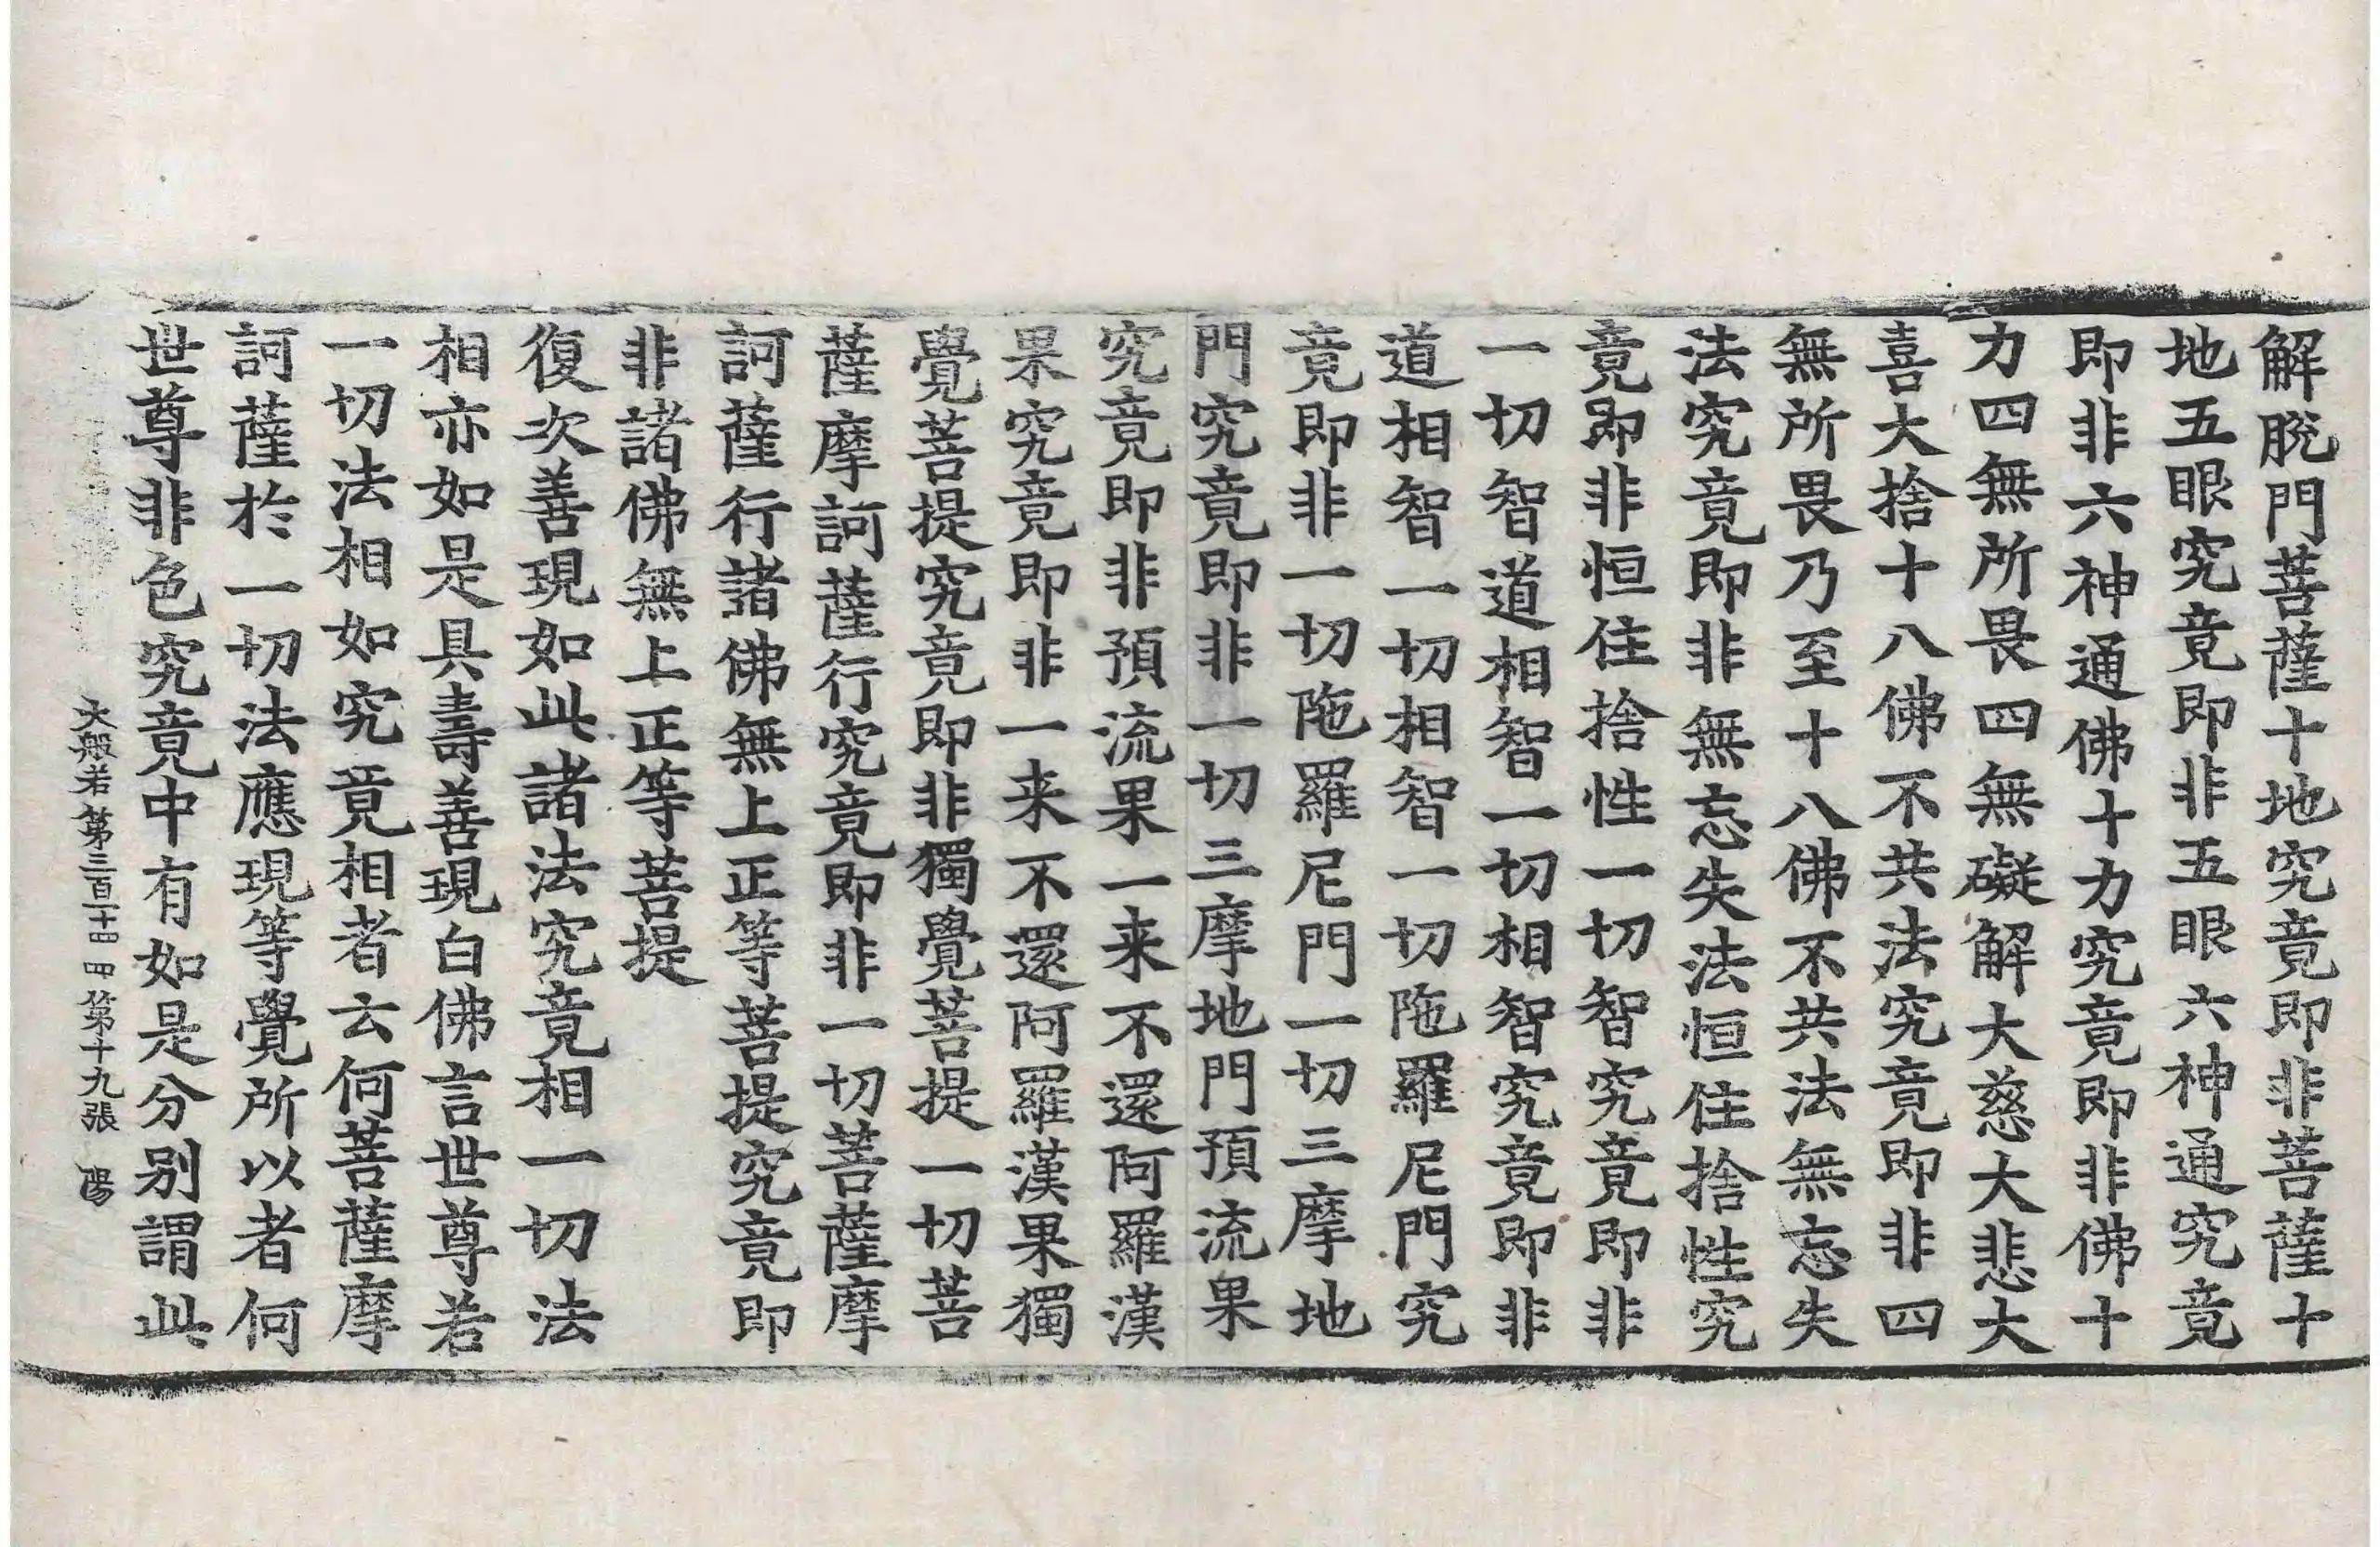 解脫門菩薩十地究竟即非菩薩十
地五眼究竟即非五眼六神通究竟
即非六神通佛十力究竟即非佛十
力四無所畏四無礙解大慈大悲大
喜大捨十八佛不共法究竟即非四
無所畏乃至十八佛不共法無忘失
法究竟即非無忘失法恒住捨性究
竟即非恒住捨性一切智究竟即非
一切智道相智一切相智究竟即非
道相智一切相智一切陁羅尼門究
竟即非一切陁羅尼門一切三摩地
門究竟即非一切三摩地門預流果
究竟即非預流果一来不還阿羅漢
果究竟即非一来不還阿羅漢果獨
覺菩提究竟即非獨覺菩提一切菩
薩摩訶薩行究竟即非一切菩薩摩
訶薩行諸佛無上正等菩提究竟即
非諸佛無上正等菩提
復次善現如此諸法究竟相一切法
相亦如是具壽善現白佛言世尊若
一切法相如究竟相者云何菩薩摩
訶薩於一切法應現等覺所以者何
世尊非色究竟中有如是分別謂此
大般若第三百二十四 四 第十九張